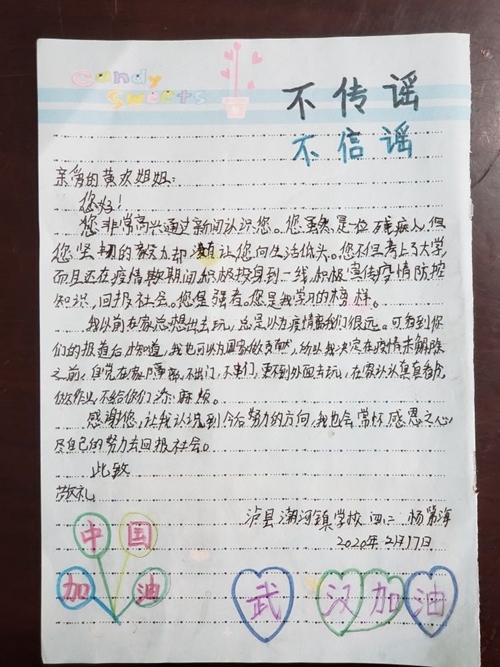 Candy
Sweets
不传谣
不信谣
亲爱的黄欢姐姐：
您好！
您非常高兴通过新闻认识您。您虽然是一位残疾人，但
您坚韧的努力却没让您向生活低头。您不但考上了大学，
而且还在疫情期间积极投身到一线，积极宣传疫情防控
知识，回报社会。您是强者。您是我学习的榜样。
我以前在家总想出去玩，总是以为疫情离我们很远。可看到你
们的报道后，才知道，我也可以为国家做贡献，所以我决定在疫情未解除
之前，自觉在家，不出门，不串门，更不到外面去玩，在家认认真真看书，
做作业，不给你们添麻烦。
感谢您，让我认识到今后努力的方向，我也会常怀感恩之心
尽自己的努力去回报社会。
此致
敬礼
泸县潮河镇学校 四二 杨
2020年2月17日
中国
加油
武汉加油